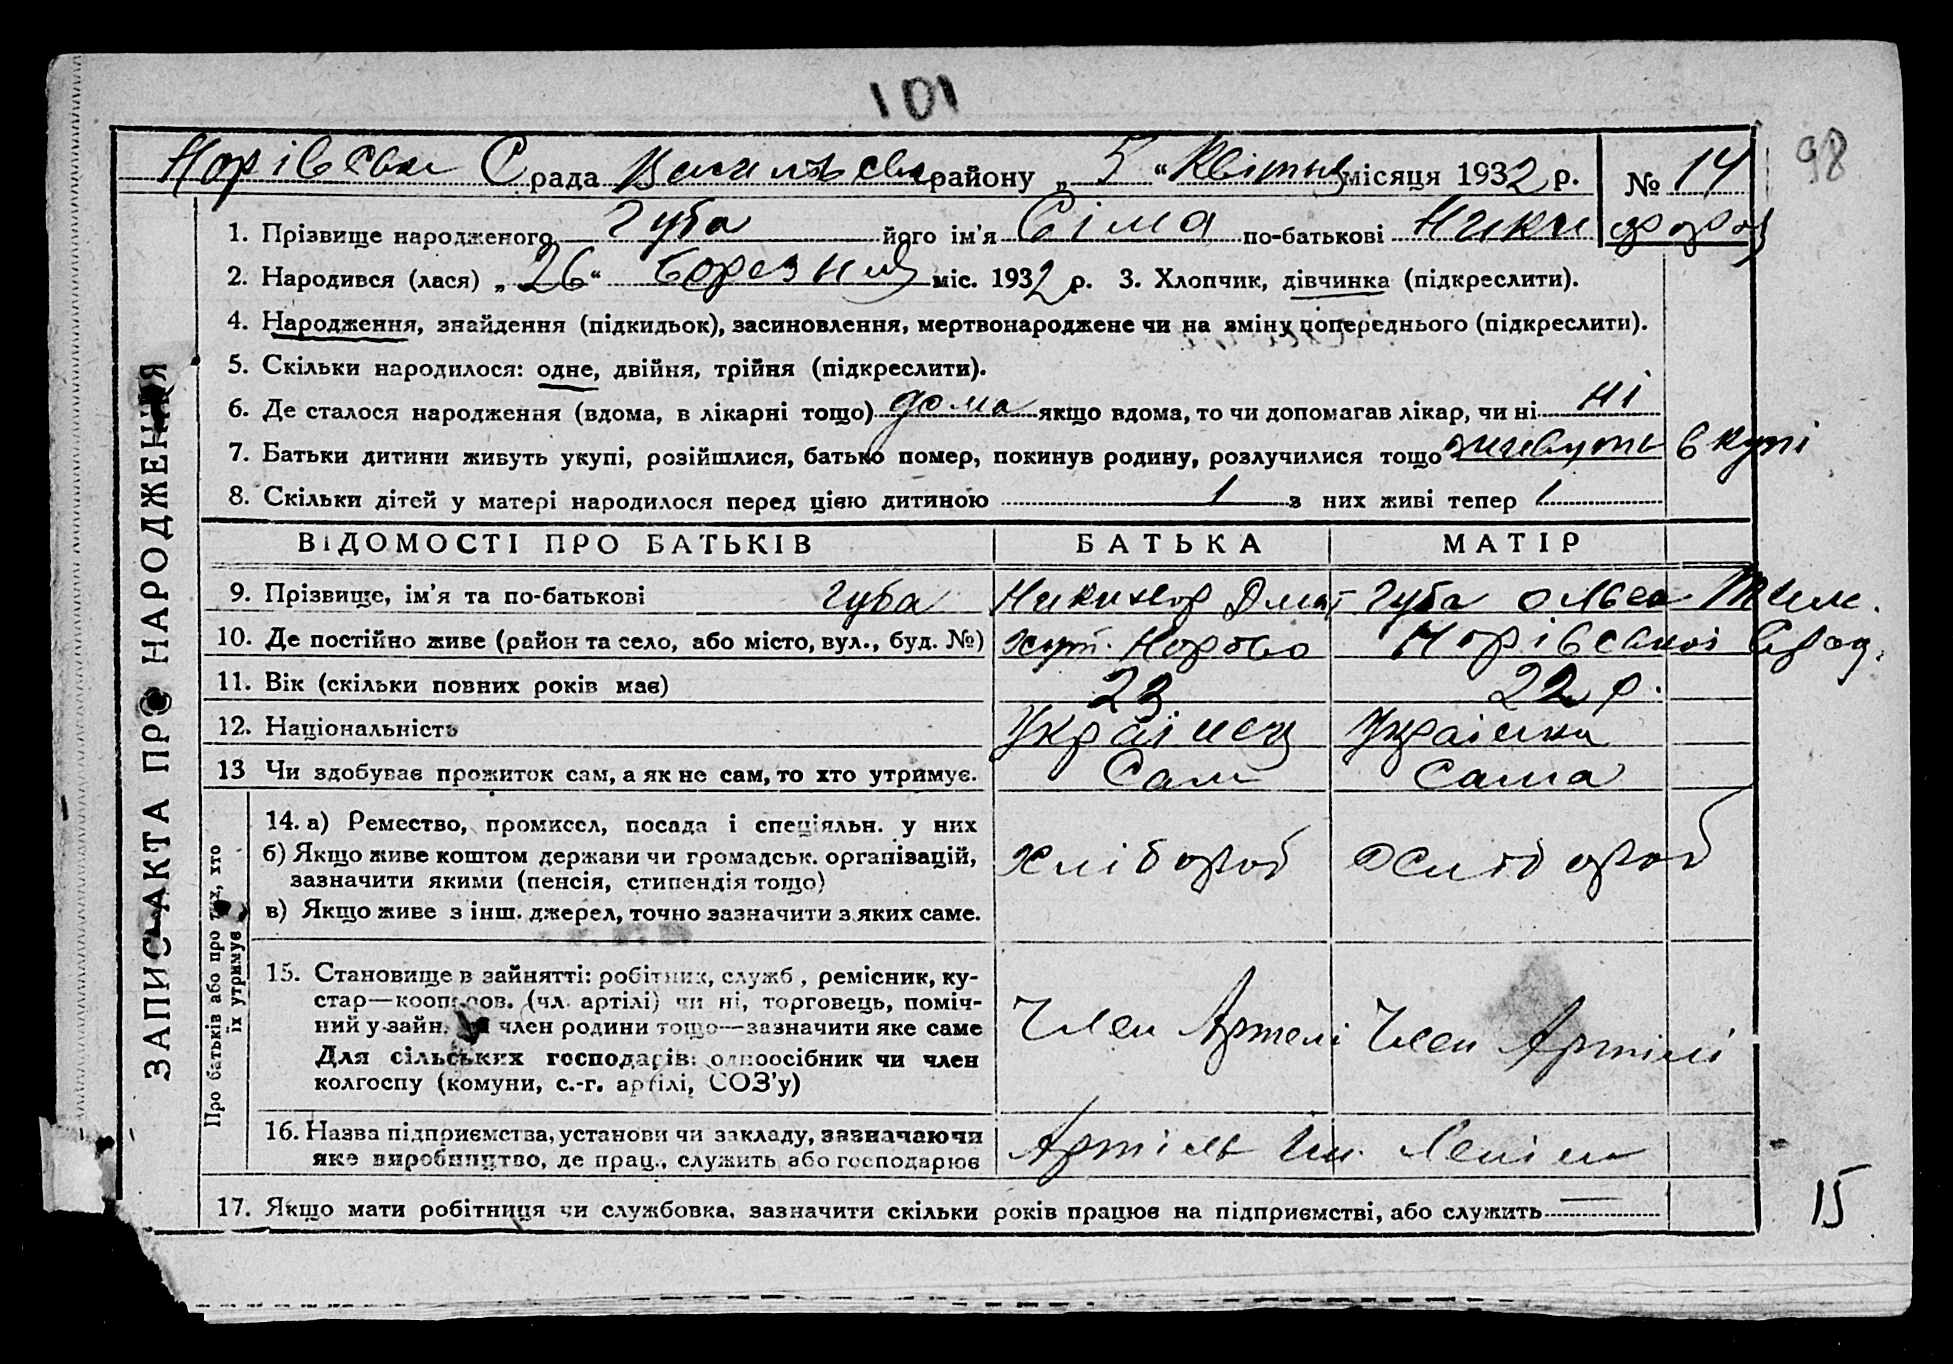 101
98
Норівськ С рада Васильськ району „ 5 “ Квітня місяця 1932 р. № 14
1. Прізвище народженого Губа його ім'я Сіма по-батькові Никифоров
2. Народився (лася) „ 26 “ березня міс. 1932 р. 3. Хлопчик, дівчинка (підкреслити).
4. Народження, знайдення (підкидьок), засиновлення, мертвонароджене чи на зміну попереднього (підкреслити).
5. Скільки народилося: одне, двійня, трійня (підкреслити).
6. Де сталося народження (вдома, в лікарні тощо) дома якщо вдома, то чи допомагав лікар, чи ні ні
7. Батьки дитини живуть укупі, розійшлися, батько помер, покинув родину, розлучилися тощо живуть вкупі
8. Скільки дітей у матері народилося перед цією дитиною 1 з них живі тепер 1
ВІДОМОСТІ ПРО БАТЬКІВ БАТЬКА МАТІР
9. Прізвище, ім'я та по-батькові Губа Никихор Дмит Губа Ольга Тим.
10. Де постійно живе (район та село, або місто, вул., буд. №) хут. Норово Норівської Срад.
11. Вік (скільки повних років має) 23 22 р.
12. Національність Українец Українка
13 Чи здобуває прожиток сам, а як не сам, то хто утримує. Сам Сама
14. а) Ремество, промисел, посада і спеціяльн. у них
б) Якщо живе коштом держави чи громадськ. організацій,
зазначити якими (пенсія, стипендія тощо)
хлібороб хлібороб
в) Якщо живе з інш. джерел, точно зазначити з яких саме.
15. Становище в зайнятті: робітник, служб., ремісник, ку-
стар—коопєров. (чл. артілі) чи ні, торговець, поміч-
ний у зайн. член родини тощо—зазначити яке саме
Член Артелі Член Артілі
Для сільських господарів: одноосібник чи член
колгоспу (комуни, с.-г. артілі, СОЗ'у)
16. Назва підприємства, установи чи закладу, зазначаючи
яке виробництво, де прац., служить або господарює
Артіль Ім. Леніна
17. Якщо мати робітниця чи службовка, зазначити скільки років працює на підприємстві, або служить —
15
ЗАПИС АКТА ПРО НАРОДЖЕННЯ
Про батьків або про тих, хто
їх утримує